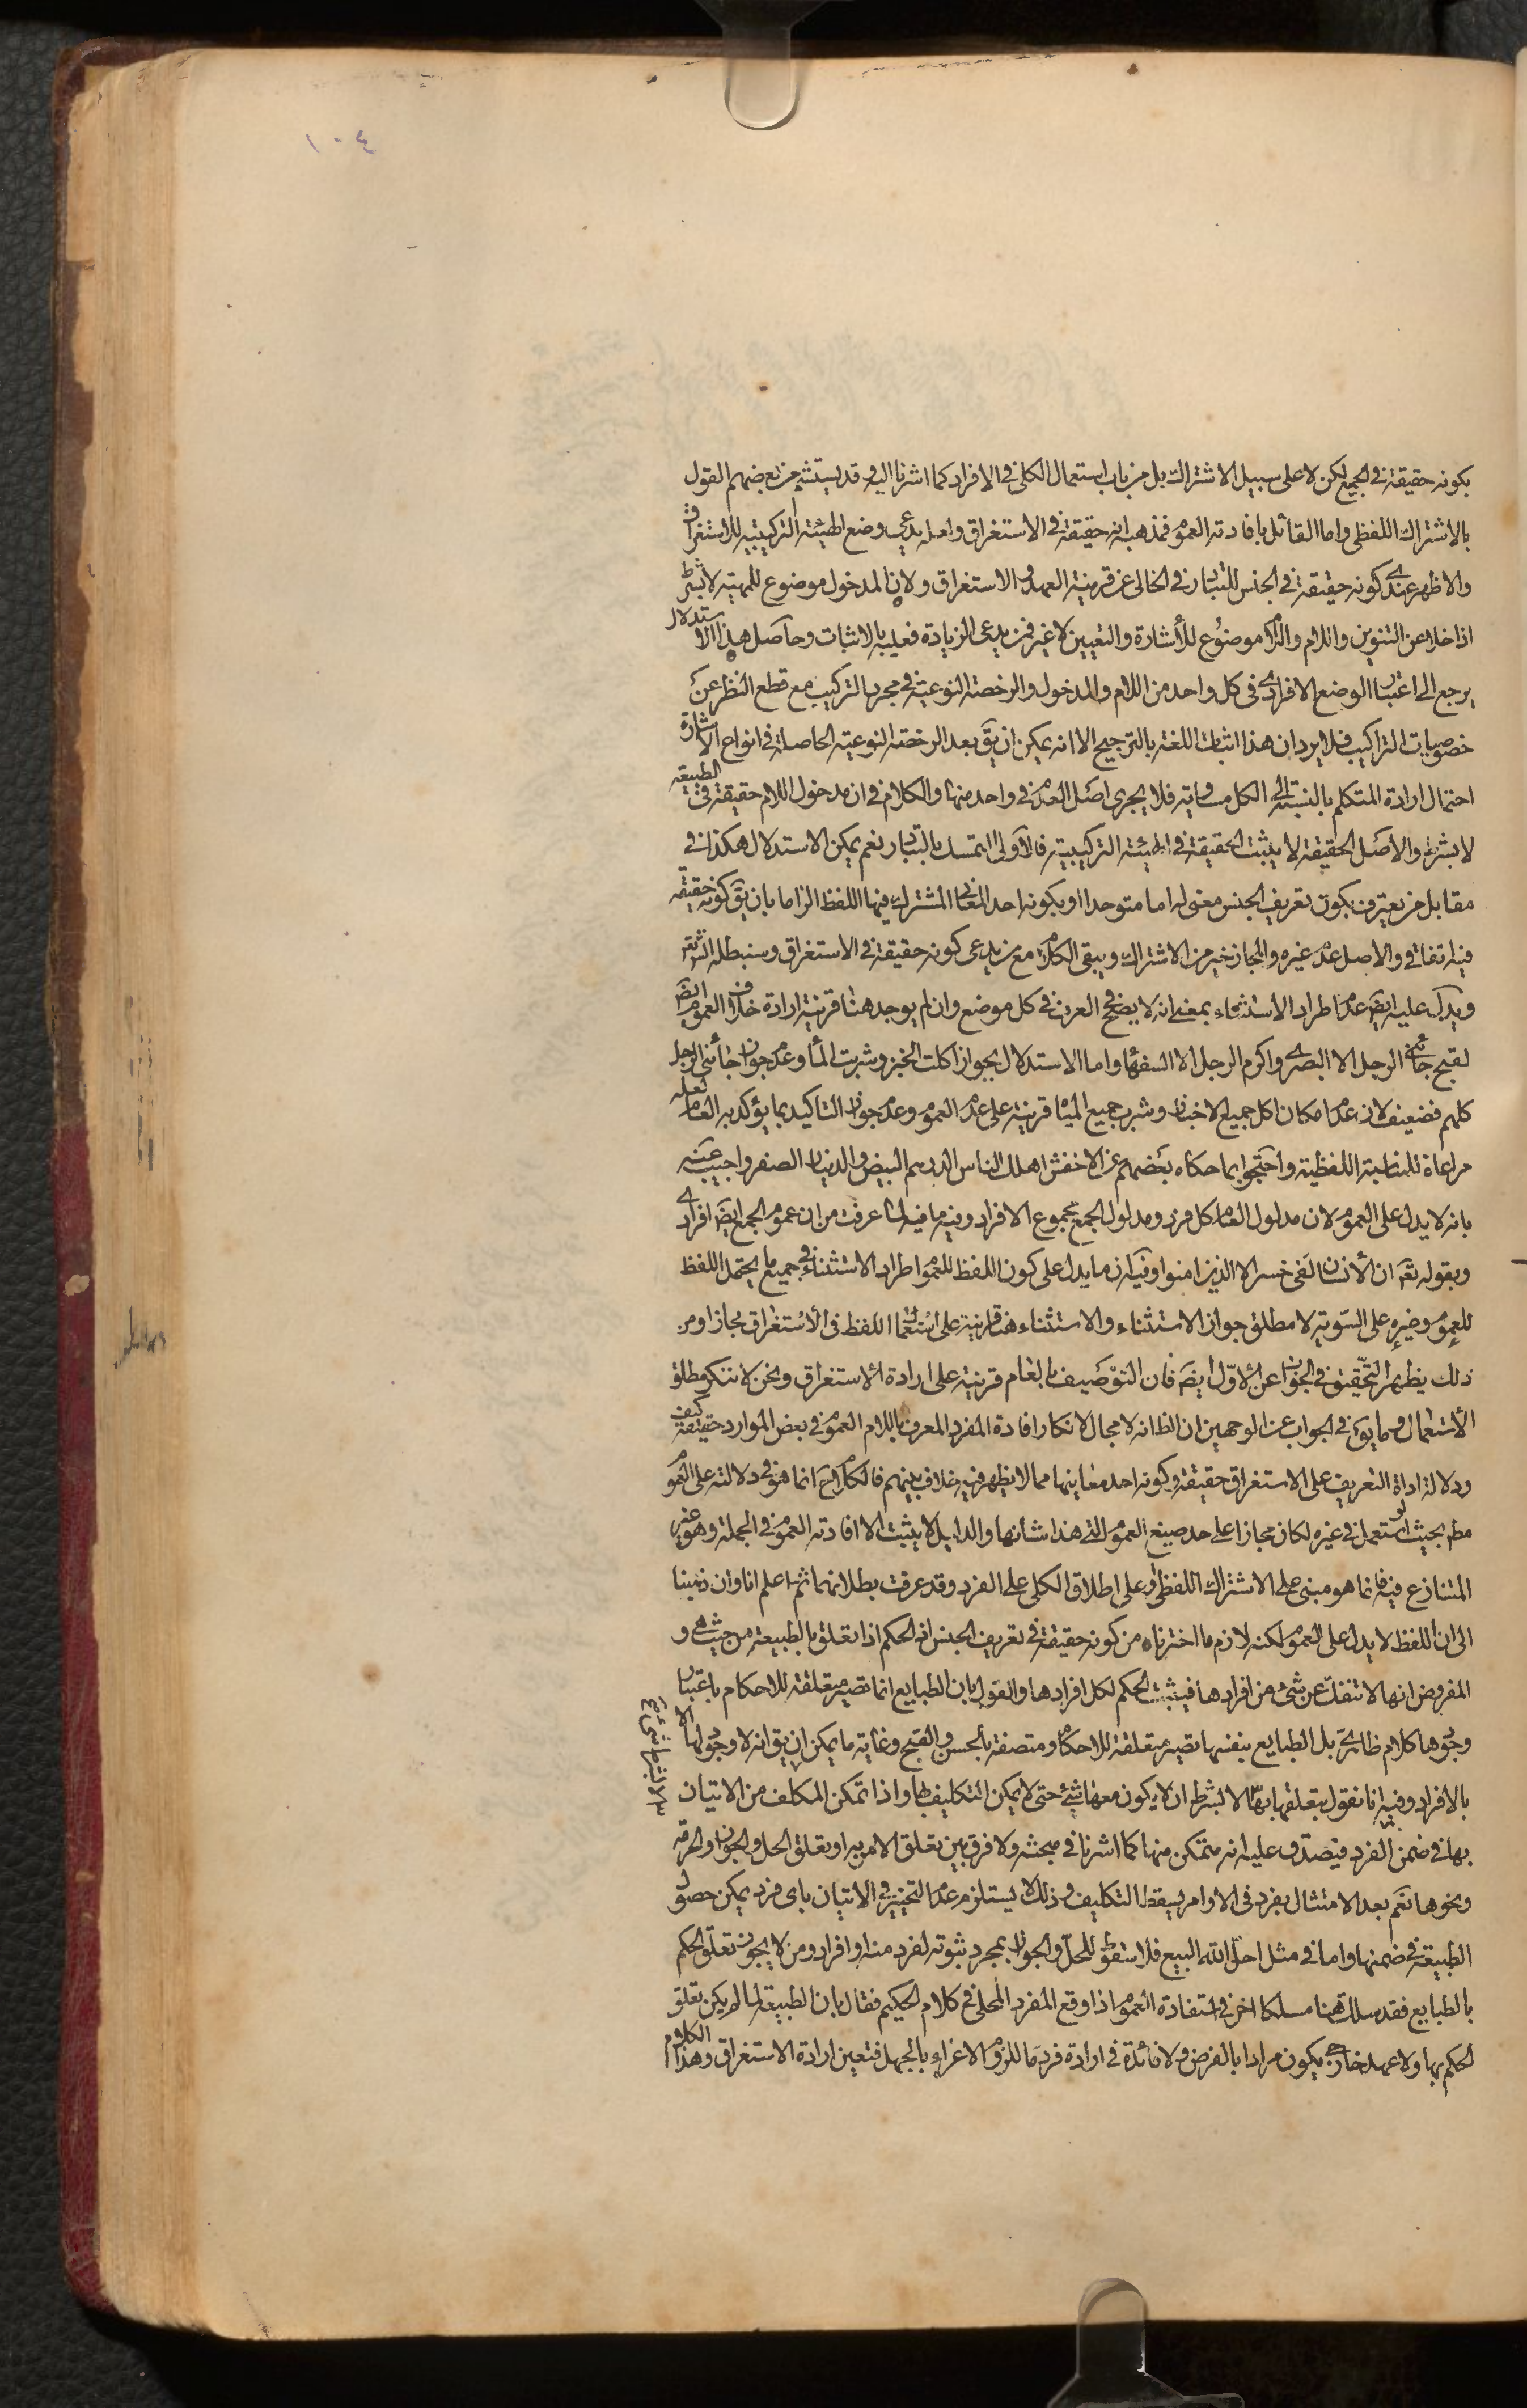 ١٠٤
بكونه حقيقة في الجميع لكن لا على سبيل الاشتراك بل من باب استعمال الكلي في الافراد كما اشرنا اليه وقد يستشم من بعضهم القول
بالاشتراك اللفظي واما القائل بافادته العموم فمذهبه انه حقيقة في الاستغراق ولعله يدعي وضع الهيئة التركيبية للاستغراق
والاظهر عندي كونه حقيقة في الجنس للتبادر في الخالي عن قرينة العهد والاستغراق ولان المدخول موضوع للمهية لا بشرط
اذا خلا عن التنوين واللام واللام موضوع للأشارة والتعيين لا غير فمن يدعي الزيادة فعليه بالاثبات وحاصل هذا الاستدلال
يرجع الى اعتبار الوضع الافرادي في كل واحد من اللام والمدخول والرخصة النوعية في مجرد التركيب مع قطع النظر عن
خصوصيات التراكيب فلا يرد ان هذا اثبات اللغة بالترجيح الا انه يمكن ان يق بعد الرخصة النوعية الحاصلة في انواع الاشارة
احتمال ارادة المتكلم بالنسبة الى الكل مساوية فلا يجري اصل العدم في واحد منها والكلام في ان مدخول اللام حقيقة في الطبيعة
لا بشرط والاصل الحقيقة لا يثبت الحقيقة في الهيئة التركيبية فالاولى التمسك بالتبادر نعم يمكن الاستدلال هكذا في
مقابل من يعترف بكون تعريف الجنس معنى له اما متوحدا او بكونه احد المعاني المشترك فيها اللفظ الزاما بان يق كونه حقيقة
فيه اتفاقي والاصل عدم غيره والمجاز خير من الاشتراك ويبقى الكلام مع من يدعي كونه حقيقة في الاستغراق وسنبطله انش تع
ويدل عليه ايض عدم اطراد الاستثناء بمعنى انه لا يصح في العرف في كل موضع وان لم يوجد هناك قرينة ارادة خلاف العموم ايض
لقبح جائني الرجل الا البصري واكرم الرجل الا السفهاء واما الاستدلال بجواز اكلت الخبز وشربت الماء وعدم جواز جائني الرجل
كلهم فضعيف لان عدم امكان اكل جميع الاخباز وشرب جميع المياه قرينة على عدم العموم وعدم جواز التاكيد بما يؤكد به العام لعله
مراعاة للمناسبة اللفظية واحتجوا بما حكاه بعضهم عن الاخفش اهلك الناس الدرهم البيض والدينار الصفر واجيب عنه
بانه لا يدل على العموم لان مدلول العام كل فرد ومدلول الجمع مجموع الافراد وفيه ما فيه لما عرفت من ان عموم الجمع ايض افرادي
وبقوله تع ان الأنسان لفي خسر الا الذين امنوا وفيه ان ما يدل على كون اللفظ للعموم اطراد الاستثناء في جميع ما يحتمل اللفظ
للعموم وغيره على السوية لا مطلق جواز الاستثناء والاستثناء هنا قرينة على استعمال اللفظ في الأستغراق مجازا ومن
ذلك يظهر التحقيق في الجواب عن الأول ايض فان التوصيف بالعام قرينة على ارادة الاستغراق ونحن لا ننكر مطلق
الأستعمال وما يق في الجواب عن الوجهين ان الظ انه لا مجال لانكار افادة المفرد المعرف باللام العموم في بعض الموارد حقيقة كيف
ودلالة اداة التعريف على الاستغراق حقيقة وكونه احد معانيها مما لا يظهر فيه خلاف بينهم فالكلام ح انما هو في دلالته على العموم
مط بحيث لو استعمل في غيره لكان مجازا على حد صيغ العموم التي هذا شانها والدليل لا يثبت الا افادته العموم في الجملة وهو غير
المتنازع فيه فانما هو مبني على الاشتراك اللفظي او على اطلاق الكلي على الفرد وقد عرفت بطلانهما ثم اعلم انا وان ذهبنا
الى ان اللفظ لا يدل على العموم لكنه لازم ما اخترناه من كونه حقيقة في تعريف الجنس اذ الحكم اذا تعلق بالطبيعة من حيث هي و
المفروض انها لا تنفك عن شئ من افرادها فيثبت الحكم لكل افرادها والقول بان الطبايع انما تصير متعلقة للاحكام باعتبار
وجودها كلام ظاهري بل الطبايع بنفسها تصير متعلقة للاحكام ومتصفة بالحسن والقبح وغاية ما يمكن ان يق انه لا وجود لها الا
بالافراد وفيه انا نقول بتعلقها بها لا بشرط ان لا يكون معها شئ حتى لا يمكن التكليف بها واذا تمكن المكلف من الاتيان
بها في ضمن الفرد فيصدق عليه انه متمكن منها كما اشرنا في مبحثه ولا فرق بين تعلق الامر به او تعلق الحل والجواز والحرمة
ونحوها نعم بعد الامتثال بفرد في الاوامر يسقط التكليف وذلك لا يستلزم عدم التخيير في الاتيان باي فرد يمكن حصول
الطبيعة في ضمنها واما في مثل احل الله البيع فلا سقوط للحل والجواز بمجرد ثبوته لفرد منه او افراد ومن لا يجوز تعلق الحكم
بالطبايع فقد سلك هنا مسلكا اخر في استفادة العموم اذا وقع المفرد المحلى في كلام الحكيم فقال بان الطبيعة لما لم يكن تعلق
الحكم بها ولا عهد خارجي يكون مرادا بالفرض ولا فائدة في ارادة فرد ما للزوم الاغراء بالجهل فتعين ارادة الاستغراق وهذا الكلام